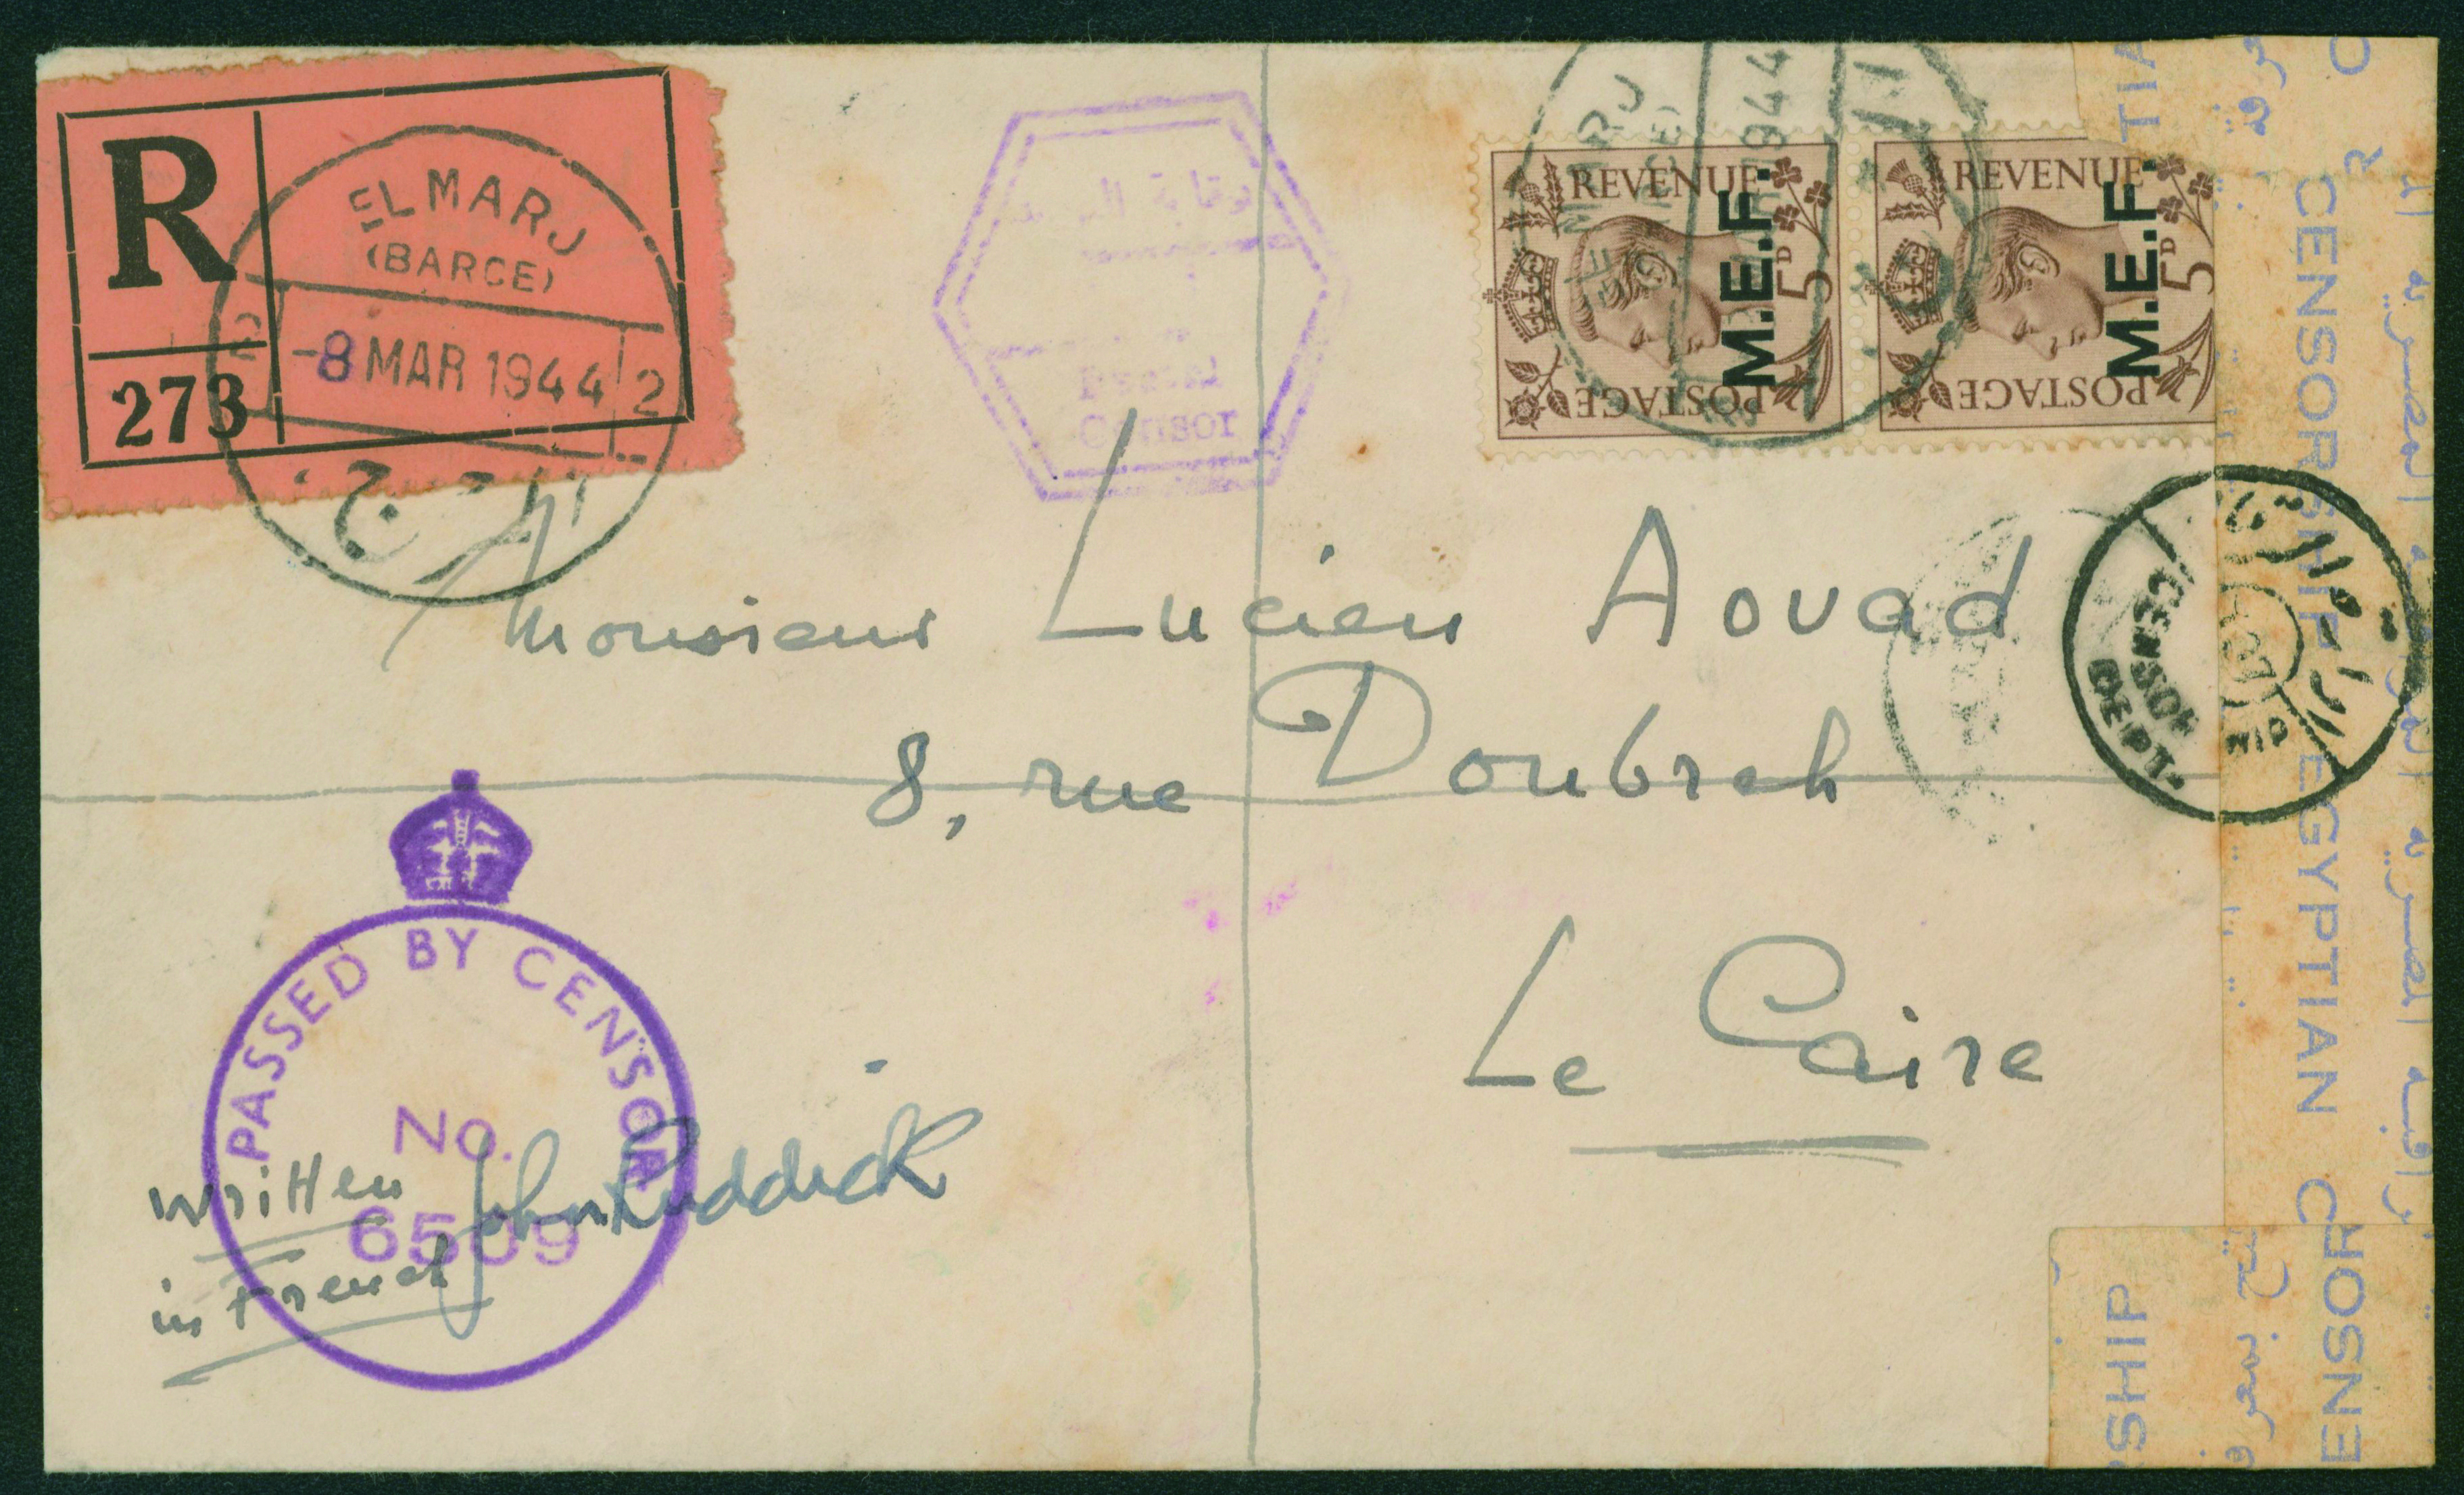 R
273
EL MARJ
(BARCE)
2 -8 MAR 1944 2
المرج
Postal
Censor
REVENUE
M.E.F.
5D
POSTAGE
REVENUE
M.E.F.
5D
POSTAGE
1944
Monsieur Lucien Aouad
8, rue Doubreh
Le Caire
CENSOR
DEPT.
PASSED BY CENSOR
No.
6509
Written
in French
John Ruddick
CENSORSHIP EGYPTIAN CENSOR
RSHIP
TIA